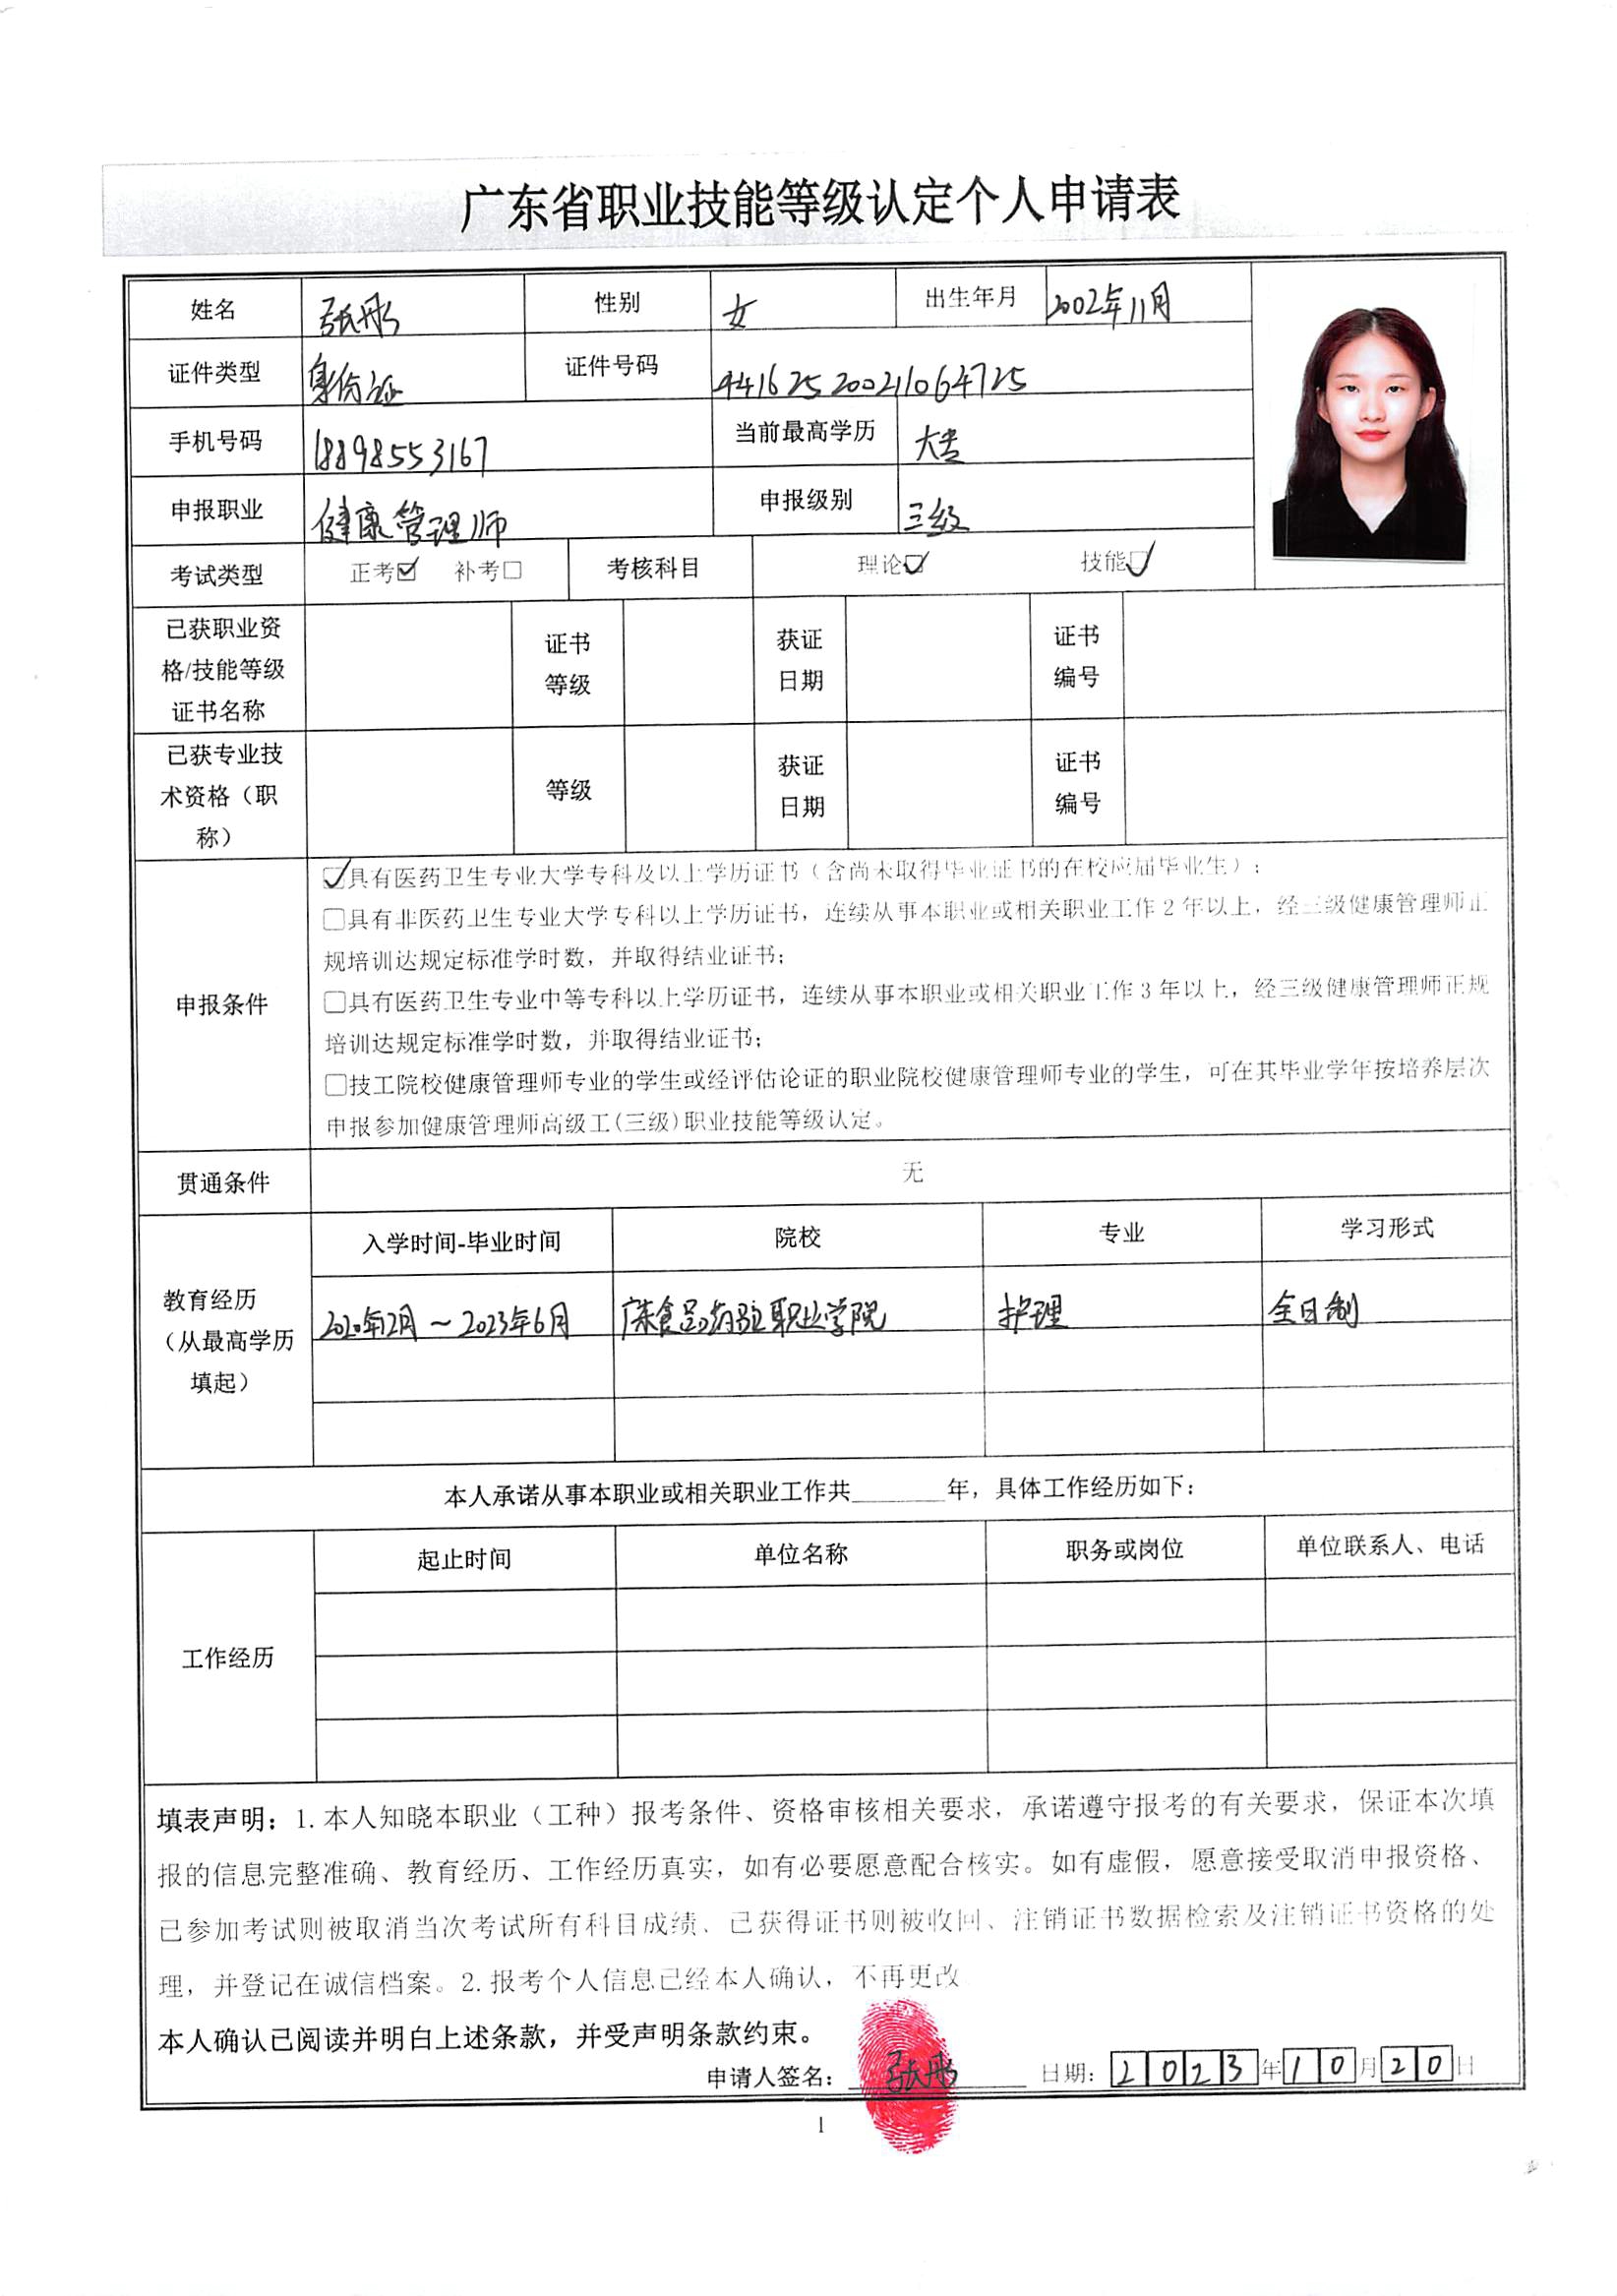 广东省职业技能等级认定个人申请表
姓名 张彤 性别 女 出生年月 2002年11月
证件类型 身份证 证件号码 441625200211064725
手机号码 18898553167 当前最高学历 大专
申报职业 健康管理师 申报级别 三级
考试类型 正考☑ 补考□ 考核科目 理论☑ 技能☑
已获职业资
格/技能等级
证书名称
证书
等级
获证
日期
证书
编号
已获专业技
术资格（职
称）
等级
获证
日期
证书
编号
申报条件
☑具有医药卫生专业大学专科及以上学历证书（含尚未取得毕业证书的在校应届毕业生）；
□具有非医药卫生专业大学专科以上学历证书，连续从事本职业或相关职业工作2年以上，经三级健康管理师正
规培训达规定标准学时数，并取得结业证书；
□具有医药卫生专业中等专科以上学历证书，连续从事本职业或相关职业工作3年以上，经三级健康管理师正规
培训达规定标准学时数，并取得结业证书；
□技工院校健康管理师专业的学生或经评估论证的职业院校健康管理师专业的学生，可在其毕业学年按培养层次
申报参加健康管理师高级工(三级)职业技能等级认定。
贯通条件 无
教育经历
（从最高学历
填起）
入学时间-毕业时间 院校 专业 学习形式
2020年2月～2023年6月 广东食品药品职业学院 护理 全日制
本人承诺从事本职业或相关职业工作共________年，具体工作经历如下：
工作经历
起止时间 单位名称 职务或岗位 单位联系人、电话
填表声明：1.本人知晓本职业（工种）报考条件、资格审核相关要求，承诺遵守报考的有关要求，保证本次填
报的信息完整准确、教育经历、工作经历真实，如有必要愿意配合核实。如有虚假，愿意接受取消申报资格、
已参加考试则被取消当次考试所有科目成绩、已获得证书则被收回、注销证书数据检索及注销证书资格的处
理，并登记在诚信档案。2.报考个人信息已经本人确认，不再更改
本人确认已阅读并明白上述条款，并受声明条款约束。
申请人签名：张彤 日期：2023年10月20日
1